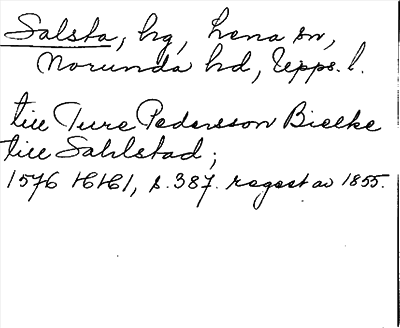 Salsta, hg, Lena sn,
Norunda hd, Upps. l.
till Ture Pedersson Bielke
till Sahlstad;
1576 16/61, s. 387. regest av 1855.